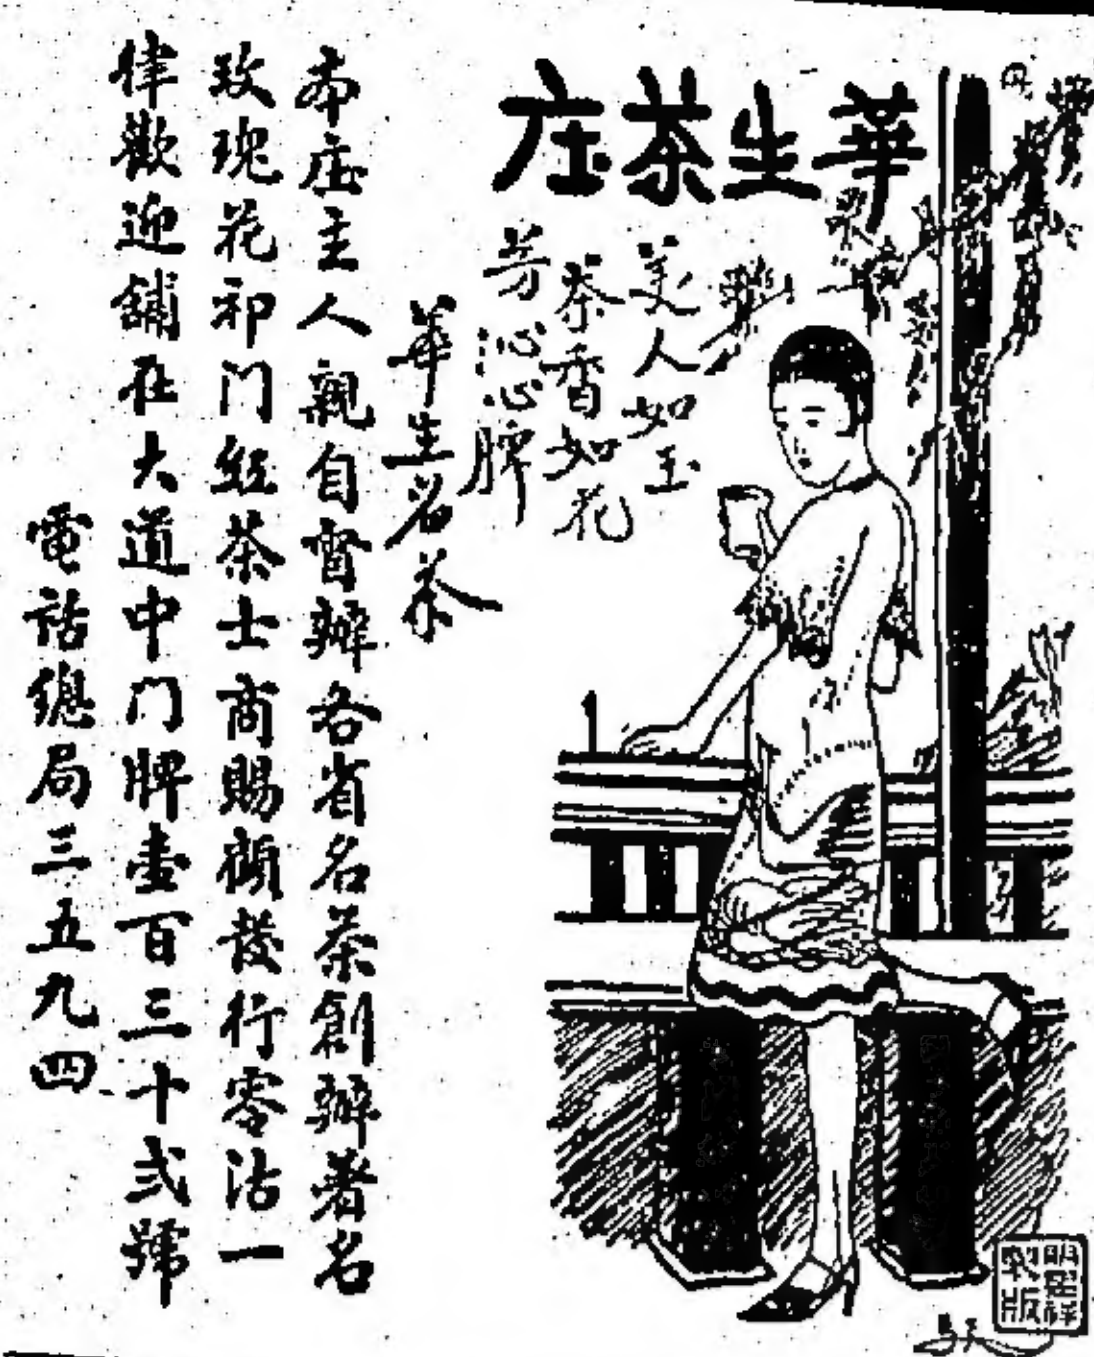 華生茶庄
美人如玉
茶香如花
芳沁心脾
華生名茶
本庄主人親自督辦各省名茶創辦著名
玫瑰花祁门紅茶士商賜顧發行零沽一
律歡迎舖在大道中门牌壹百三十弍號
電話總局三五九四
製版